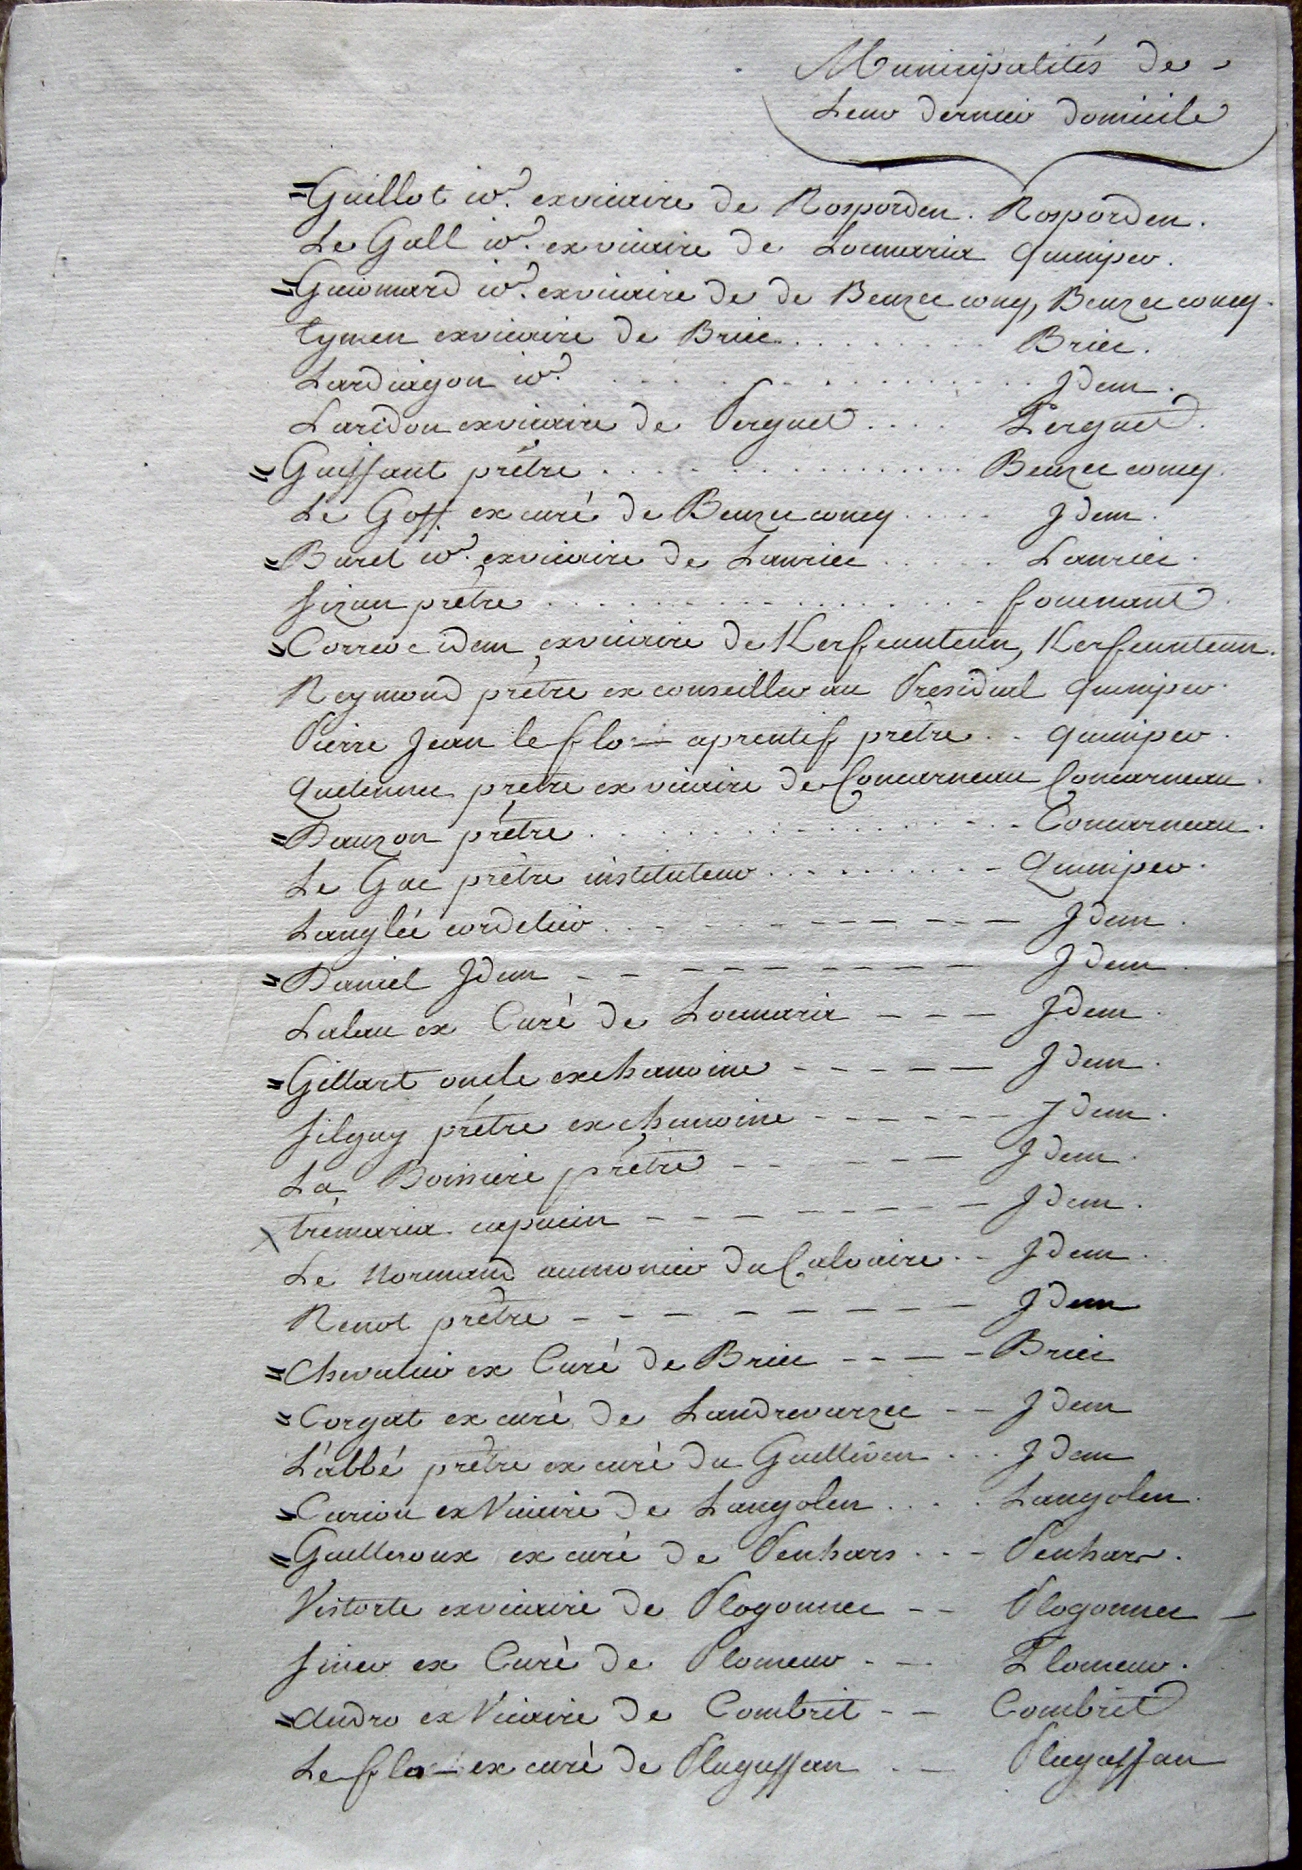 Municipalités de
Leur dernier domicile
Guillot id. exvicaire de Rosporden. Rosporden.
Le Gall id. exvicaire de Locmaria Quimper.
Guiomard id. exvicaire de de Beuzec conq, Beuzec concq.
Tymen exvicaire de Briec......... Briec.
Lardiagon id. ......... Idem.
Laridon exvicaire de Perguet.... Perguet.
Guiffant prêtre ......... Beuzec concq.
Le Goff. ex curé de Beuzec concq..... Idem.
Buret id. exvicaire de Lanriec..... Lanriec.
Sizun prêtre ......... fouenant.
Corre idem exvicaire de Kerfeunteun, Kerfeunteun.
Reymond prêtre ex conseiller au Presidial Quimper.
Pierre Jean le flo- aprentif prêtre .. Quimper.
Quelennec prêtre ex vicaire de Concarneau Concarneau.
Dauzon prêtre ......... Concarneau.
Le Gac prêtre instituteur ......... Quimper.
Langlée cordelier ......... Idem.
Daniel Idem --------- Idem.
Lalau ex Curé de Locmaria --- Idem.
Gillart oncle exchanoine ----- Idem.
Silguy prêtre exchanoine ----- Idem.
La Boissiere prêtre ----- Idem.
Trémaria capucin -------- Idem.
Le Normand aumonier du Calvaire .. Idem.
Renot prêtre -------- Idem
Chevalier ex Curé de Briec ---- Briec
Corgat ex curé de Landrevarzec -- Idem
L'abbé prêtre ex curé du Guelliven ... Idem
Cariou ex Vicaire de Langolen.... Langolen.
Guilleroux ex curé de Penhars ... Penhars.
Vistorte exvicaire de Plogonnec -- Plogonnec -
Siner ex Curé de Plomeur .-- Plomeur.
Andro ex Vicaire de Combrit -- Combrit
Le flo- ex curé de Pluguffan .- Pluguffan